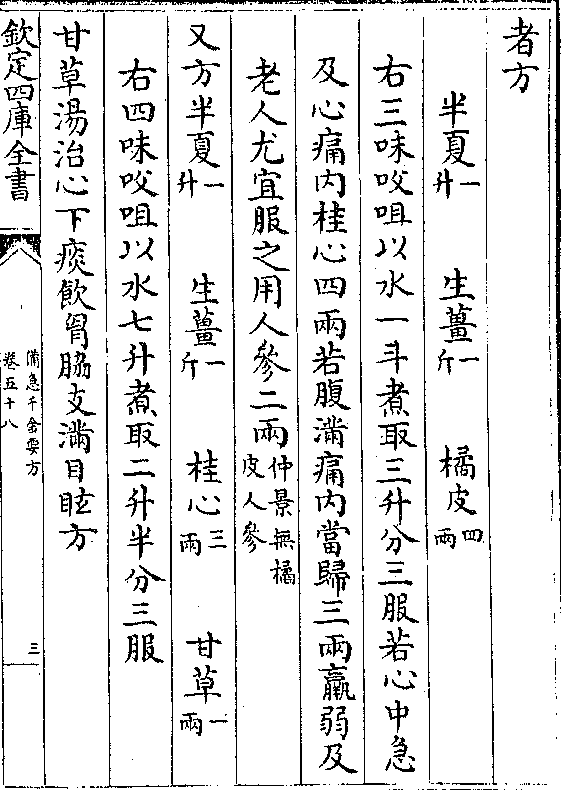 者方
半夏一升 生薑一斤 橘皮四兩
右三味㕮咀以水一斗煮取三升分三服若心中急
及心痛内桂心四兩若腹滿痛内當歸三兩羸弱及
老人尤宜服之用人參二兩仲景無橘皮人參
又方半夏一升 生薑一斤 桂心三兩 甘草一兩
右四味㕮咀以水七升煮取二升半分三服
甘草湯治心下痰飲胷脇支滿目眩方
欽定四庫全書
備急千金要方
卷五十八
三